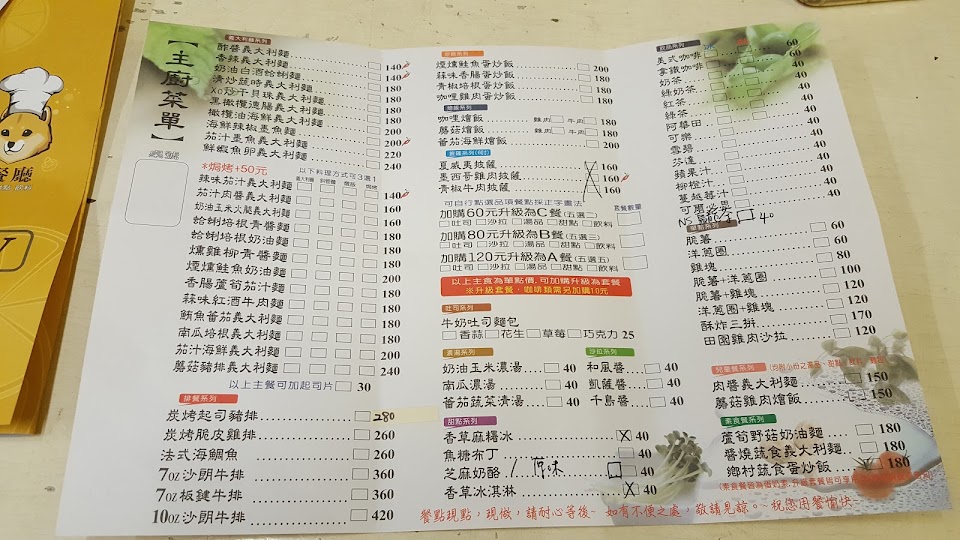 餐廳
【主廚菜單】
義大利麵系列
酢醬義大利麵 140
香辣義大利麵 140
奶油白酒蛤蜊麵 180
清炒蔬時義大利麵 180
XO炒干貝珠義大利麵 180
黑橄欖德腸義大利麵 180
橄欖油海鮮義大利麵 200
海鮮辣椒墨魚麵 200
茄汁墨魚義大利麵 220
鮮蝦魚卵義大利麵 240
*焗烤+50元
以下料理方式可3選1
辣味茄汁義大利麵 140
茄汁肉醬義大利麵 160
奶油玉米火腿義大利麵 160
蛤蜊培根青醬麵 180
蛤蜊培根奶油麵 180
燻雞柳青醬麵 180
煙燻鮭魚奶油麵 180
香腸蘆筍茄汁麵 180
蒜味紅酒牛肉麵 180
鮪魚蕃茄義大利麵 180
南瓜培根義大利麵 180
茄汁海鮮義大利麵 200
蘑菇豬排義大利麵 240
以上主餐可加起司片 30
排餐系列
炭烤起司豬排 280
炭烤脆皮雞排 260
法式海鯛魚 260
7oz沙朗牛排 360
7oz板鍵牛排 360
10oz沙朗牛排 420
煙燻鮭魚蛋炒飯 200
蒜味香腸蛋炒飯 180
青椒培根蛋炒飯 180
咖哩雞肉蛋炒飯 180
咖哩燴飯 雞肉 牛肉 180
蘑菇燴飯 雞肉 牛肉 180
蕃茄海鮮燴飯 180
夏威夷披薩 160
墨西哥雞肉披薩 160
青椒牛肉披薩 160
可自行點選品項餐點採正字畫法
套餐數量
加購60元升級為C餐(五選二)
吐司 沙拉 湯品 甜點 飲料
加購80元升級為B餐(五選三)
吐司 沙拉 湯品 甜點 飲料
加購120元升級為A餐(五選五)
吐司 沙拉 湯品 甜點 飲料
以上主食為單點價,可加購升級為套餐
※升級套餐,咖啡類需另加購10元
吐司系列
牛奶吐司麵包
香蒜 花生 草莓 巧克力 25
濃湯系列
奶油玉米濃湯 40
南瓜濃湯 40
蕃茄蔬菜清湯 40
沙拉系列
和風醬 40
凱薩醬 40
千島醬 40
甜點系列
香草麻糬冰 X 40
焦糖布丁 40
芝麻奶酪 / 原味 40
香草冰淇淋 X 40
飲品系列
美式咖啡 60
拿鐵咖啡 60
奶茶 40
綠奶茶 40
紅茶 40
綠茶 40
阿華田 40
可樂 40
雪碧 40
芬達 40
蘋果汁 40
柳橙汁 40
蔓越莓汁 40
可爾必思 40
40
單點系列
脆薯 60
洋蔥圈 60
雞塊 80
脆薯+洋蔥圈 100
脆薯+雞塊 120
洋蔥圈+雞塊 120
酥炸三拼 170
田園雞肉沙拉 120
兒童餐系列
肉醬義大利麵 150
蘑菇雞肉燴飯 150
素食餐系列
蘆筍野菇奶油麵 180
醬燒蔬食義大利麵 180
鄉村蔬食蛋炒飯 180
餐點現點,現做,請耐心等後~ 如有不便之處,敬請見諒。~祝您用餐愉快